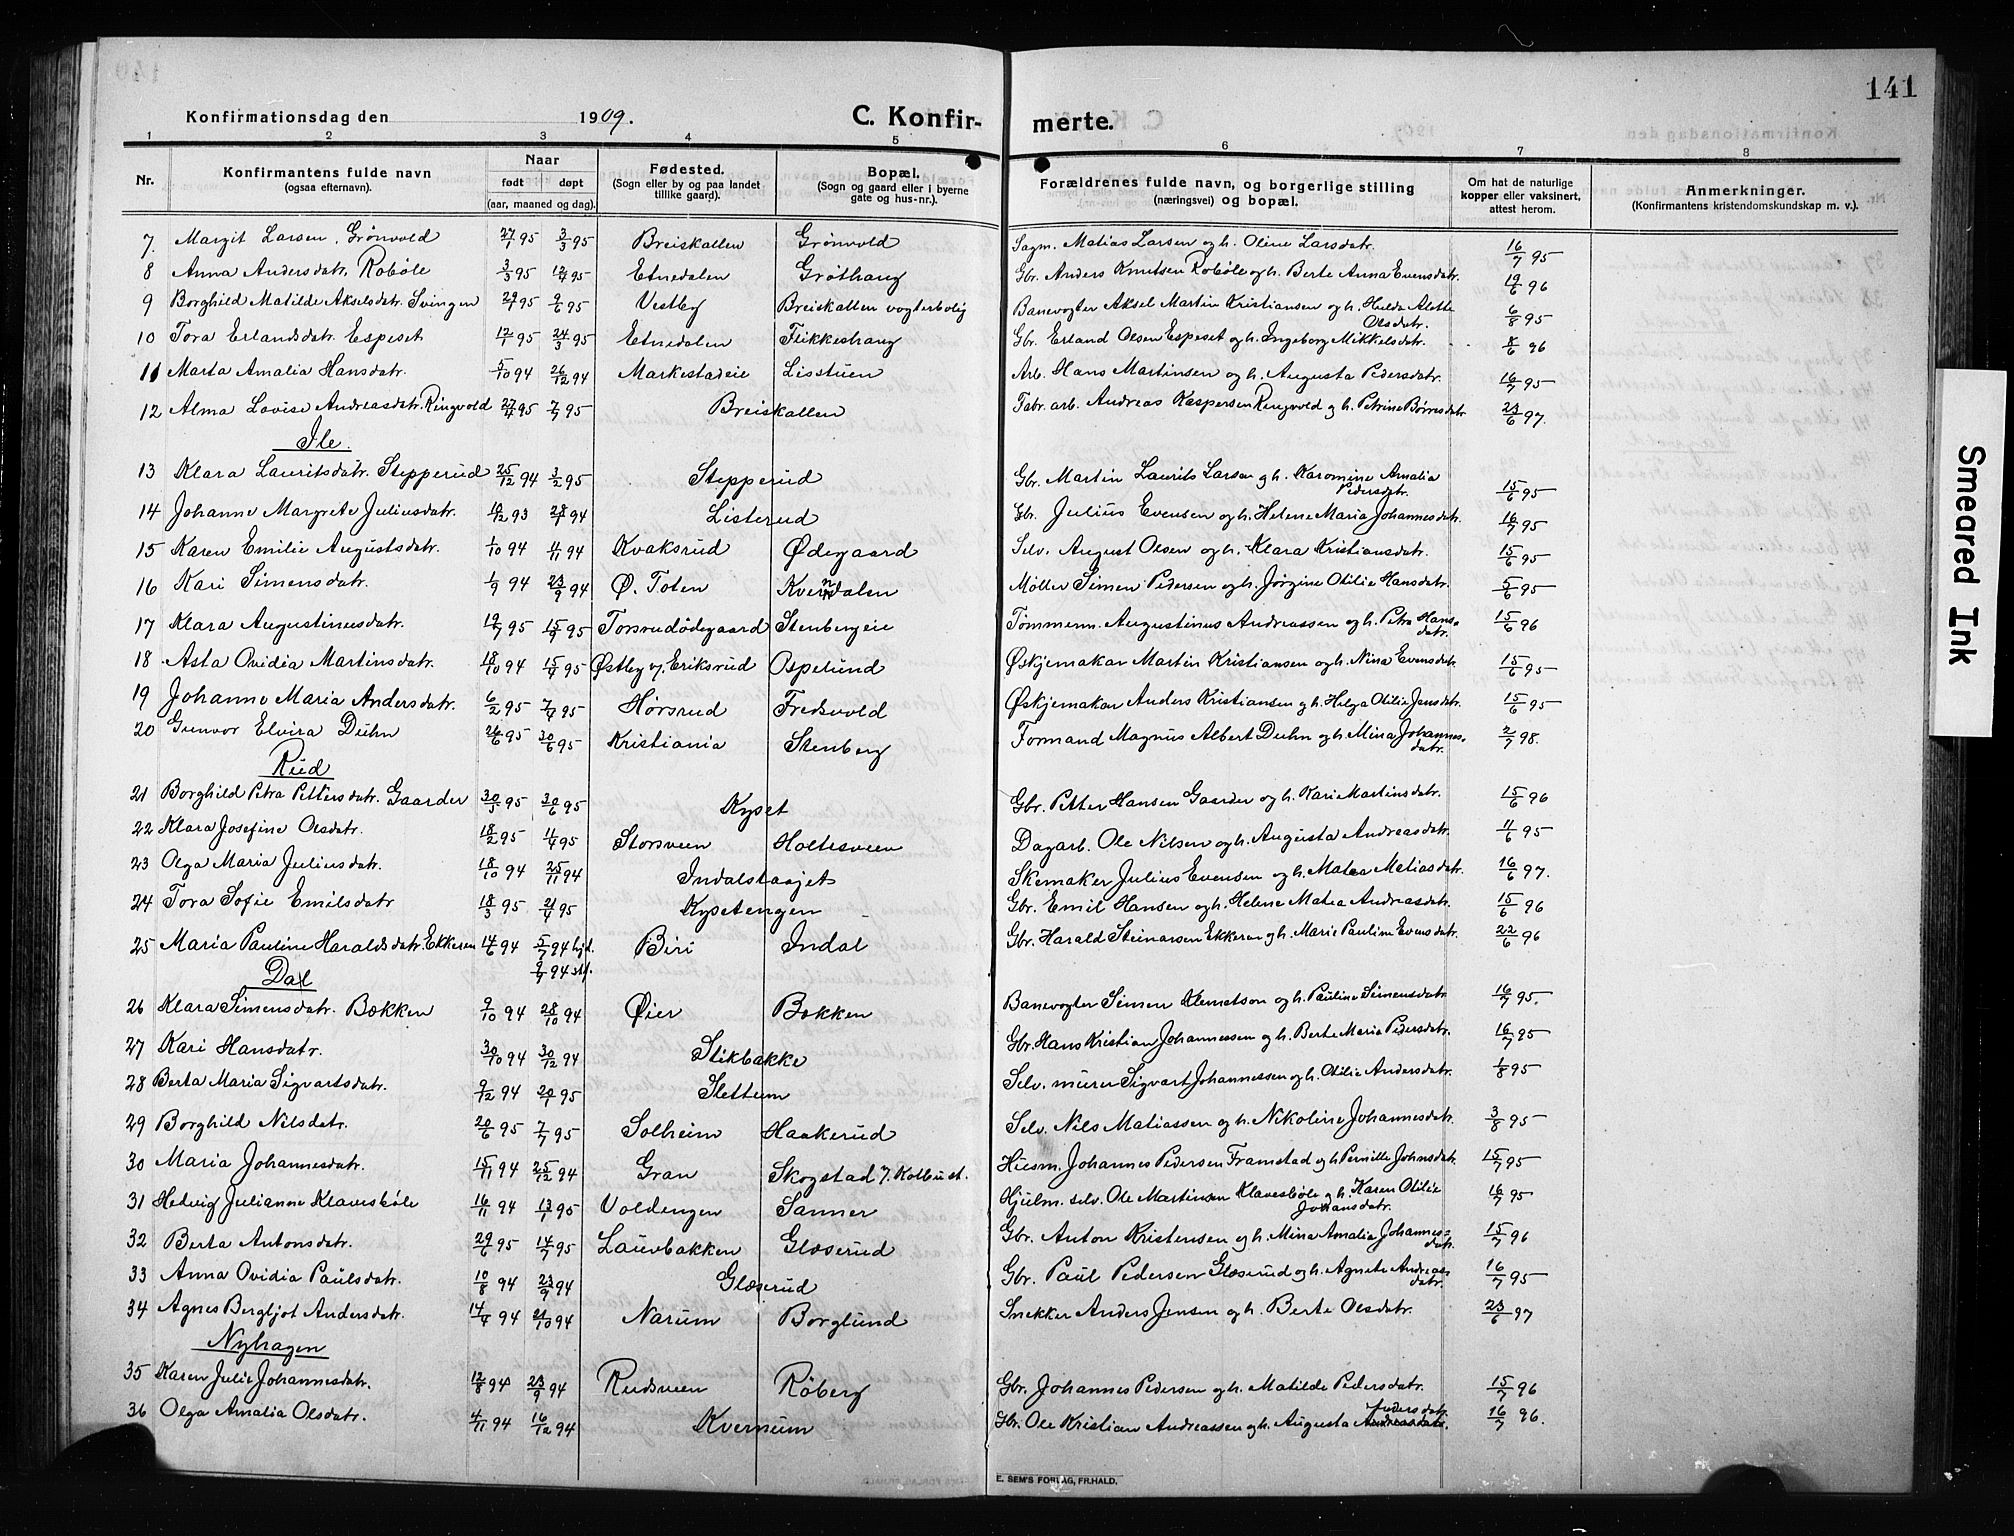 141
Konfirmationsdag den 1909. C. Konfir- merte.
1 2 3 4 5 6 7 8
Nr. Konfirmantens fulde navn (ogsaa efternavn). Naar født døpt (aar, maaned og dag). Fødested. (Sogn eller by og paa landet tillike gaard). Bopæl. (Sogn og gaard eller i byerne gate og hus-nr.). Forældrenes fulde navn, og borgerlige stilling (næringsvei) og bopæl. Om hat de naturlige kopper eller vaksinert, attest herom. Anmerkninger. (Konfirmantens kristendomskundskap m. v.).
7. Margit Larsen Grønvold 27/1 95 3/3 95 Breiskallen Grønvold Sagm. Matias Larsen og h. Oline Larsdatr. 16/7 95
8 Anna Andersdatr. Robøle 3/3 95 12/4 95 Etnedalen Grøthaug Gbr. Anders Knutsen Robøle og h. Berte Anna Evensdatr. 19/6 96
9 Borghild Matilde Akselsdatr. Svingen 29/1 95 9/6 95 Vestby Breiskallen vogterbolig Banevogter Aksel Martin Kristiansen og h. Hulda Alette Olsdatr. 6/8 95
10 Tora Erlandsdatr. Espeset 12/1 95 24/3 95 Etnedalen Flikkeshaug Gbr. Erland Olsen Espeset og h. Ingeborg Mikkelsdatr. 8/6 96
11 Marta Amalia Hansdatr. 5/10 94 26/12 94 Markestadeie Lisstuen Arb. Hans Martinsen og h. Augusta Pedersdatr. 16/7 95
12 Alma Lovise Andreasdatr. Ringvold 27/4 95 7/7 95 Breiskallen Fabr. arb. Andreas Kaspersen Ringvold og h. Petrine Børresdatr. 23/6 97.
Ile.
13 Klara Lauritsdatr. Stepperud 25/12 94 3/2 95 Stepperud Gbr. Martin Laurits Larsen og h. Karomine Amalia Pedersdatr. 15/6 95
14 Johanne Margrete Juliusdatr. 10/12 93 28/1 94 Listerud Gbr. Julius Evensen og h. Helene Maria Johannesdatr. 16/7 95
15 Karen Emilie Augustsdatr. 1/10 94 4/11 94 Kvaksrud Ødegaard Selv. August Olsen og h. Klara Kristiansdatr. 15/6 95
16 Kari Simensdatr. 1/9 94 23/9 94 Ø. Toten Kverndalen Møller Simen Pedersen og h. Jørgine Otilie Hansdatr. 5/6 95
17 Klara Augustinusdatr. 19/7 95 15/9 95 Torsrudødegaard Stenbergeie Tømmerm. Augustinus Andreassen og h. Petra Hansdatr. 15/6 96
18 Asta Ovidia Martinsdatr. 18/10 94 15/4 95 Østby y. Eriksrud Ospelund Øskjemakar Martin Kristiansen og h. Nina Evensdatr. 15/6 95
19 Johanne Maria Andersdatr. 6/2 95 7/4 95 Hørsrud Fredsvold Øskjemakar Anders Kristiansen og h. Helga Otilie Jensdatr. 15/6 95
20 Gunvor Elvira Duhn 26/6 95 30/6 95 Kristiania Stenberg Formand Magnus Albert Duhn og h. Mina Johannesdatr. 2/7 98.
Rud
21 Borghild Petra Pettersdatr. Gaarder 30/5 95 30/6 95 Kyset Gbr. Petter Hansen Gaarder og h. Kari Martinsdatr. 15/6 96
22 Klara Josefine Olsdatr. 18/2 95 4/4 95 Storsveen Holtesveen Dagarb. Ole Nilsen og h. Augusta Andreasdatr. 11/6 95
23 Olga Maria Juliusdatr. 18/10 94 25/11 94 Indalstaajet Skomaker Julius Evensen og h. Matea Matiasdatr. 16/6 97.
24 Tora Sofie Emilsdatr 18/3 95 21/4 95 Kysetengen Gbr. Emil Hansen og h. Helene Matea Andreasdatr. 15/6 96
25 Maria Pauline Haraldsdatr. Ekkeren 14/6 94 5/7 94 hjd. 9/9 94 stf. Biri Indal Gbr. Harald Steinarsen Ekkeren og h. Marie Pauline Evensdatr. 22/6 96
Dal
26 Klara Simensdatr. Bækken 9/10 94 28/10 94 Øier Bækken Banevogter Simen Klemetson og h. Pauline Simensdatr. 16/7 95.
27 Kari Hansdatr. 30/10 94 30/12 94 Stikbakke Gbr. Hans Kristian Johannessen og h. Berte Maria Pedersdatr. 16/7 95
28 Berta Maria Sigvartsdatr. 9/12 94 20/1 95 Slettum Selv. murer Sigvart Johannessen og h. Otilie Andersdatr. 1/8 95
29 Borghild Nilsdatr. 20/6 95 7/7 95 Solheim Haakerud Selv. Nils Matiassen og h. Nikoline Johannesdatr. 3/8 95
30 Maria Johannesdatr. 15/11 94 25/12 94 Gran Skogstad y. Kolbust. Husm. Johannes Pedersen Framstad og h. Pernille Johnsdatr. 15/7 95
31 Hedvig Julianne Klavesbøle 16/11 94 13/1 95 Voldengen Sanner Hjulm. selv. Ole Martinsen Klavesbøle og h. Karen Otilie Johansdatr. 16/7 95
32 Berta Antonsdatr. 29/6 95 14/7 95 Lauvbakken Glæserud Gbr. Anton Kristensen og h. Mina Amalia Johannesdatr. 15/7 96
33 Anna Ovidia Paulsdatr. 10/8 94 23/9 94 Glæserud Gbr. Paul Pedersen Glæserud og h. Agnete Andreasdatr. 16/7 95
34 Agnes Bergljot Andersdatr. 14/4 94 21/10 94 Narum Borglund Snekker Anders Jensen og h. Berte Olsdatr. 23/6 97
Nyhagen
35 Karen Julie Johannesdatr. 12/8 94 23/9 94 Rudsveen Røberg Gbr. Johannes Pedersen og h. Matilde Pedersdatr. 15/7 96
36 Olga Amalia Olsdatr. 4/11 94 16/12 94 Kvernum Gbr. Ole Kristian Andreassen og h. Augusta Pedersdatr. 16/7 96.
E. SEM'S FORLAG, FR.HALD.
Smeared Ink